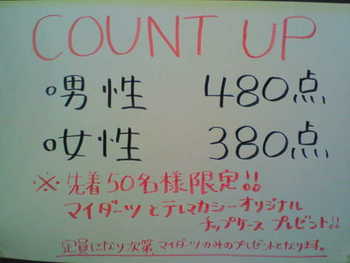 COUNT UP
○男性 480点
○女性 380点
※先着50名様限定!!
マイダーツとテレマカシーオリジナル
チップケースプレゼント!!
定員になり次第マイダーツのみのプレゼントとなります。